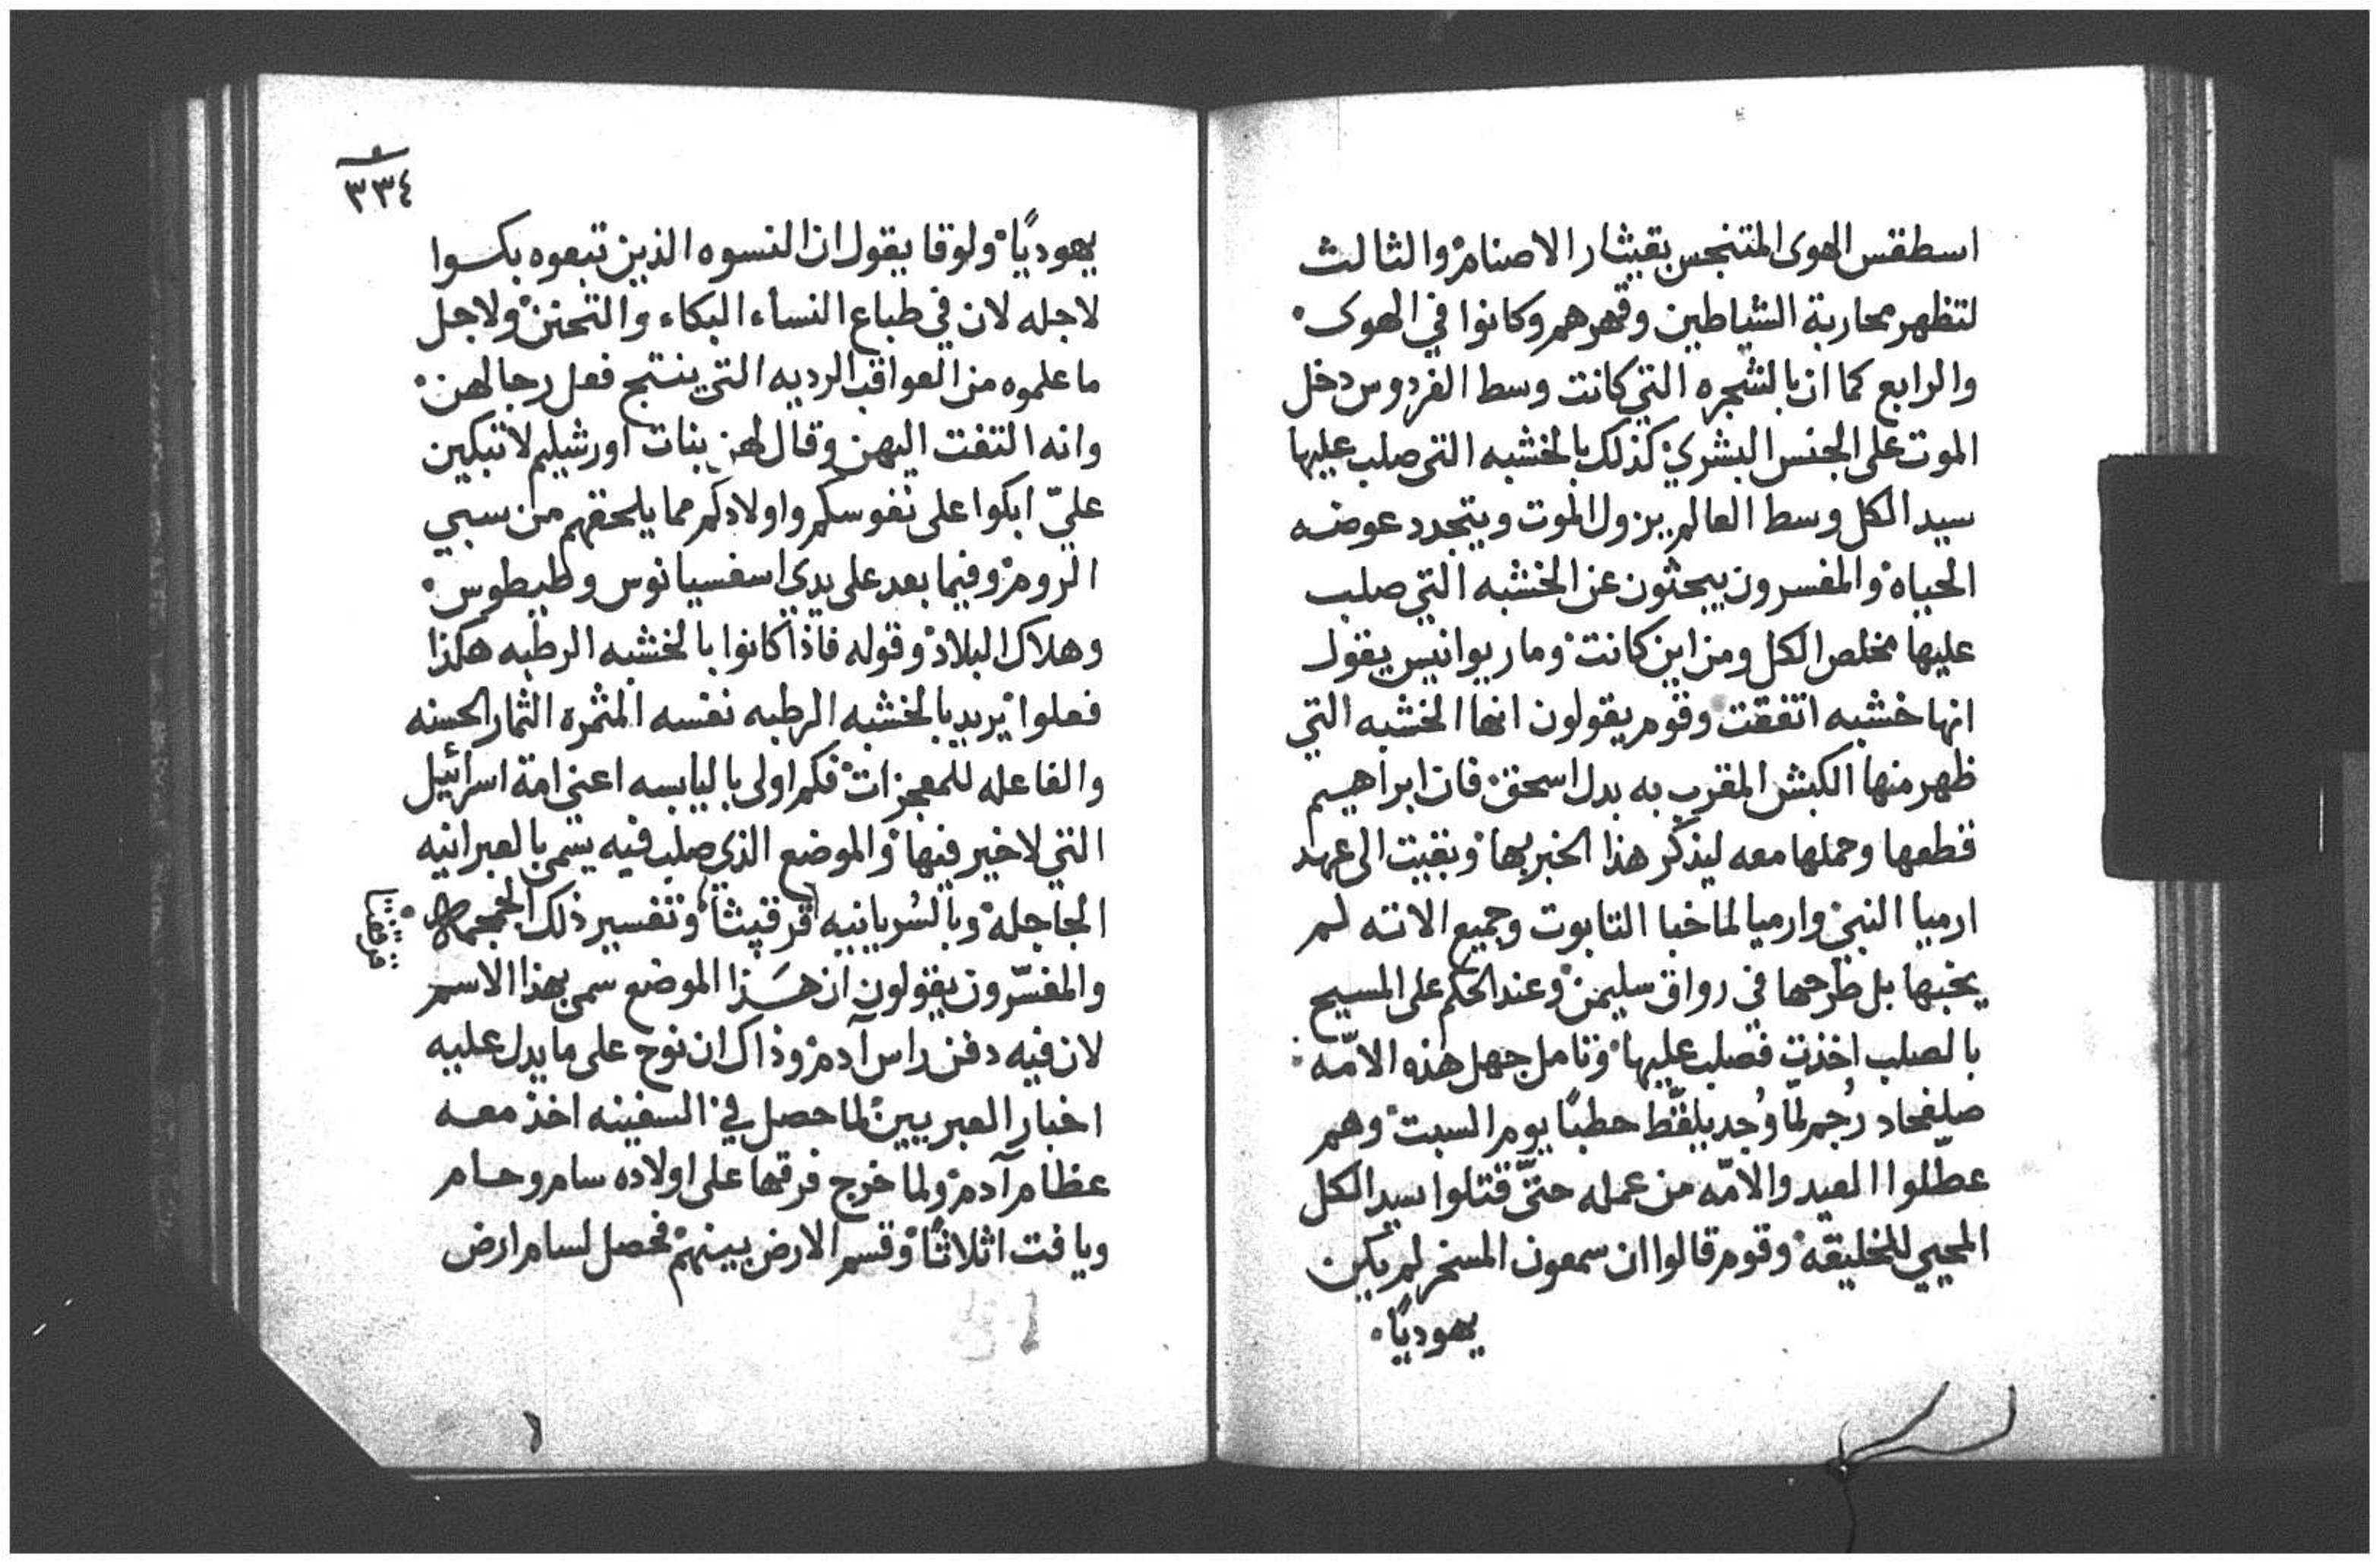 اسطقس الهوى المتنجس بقيثار الاصنام والثالث
لتظهر محاربة الشياطين وقهرهم وكانوا في الهوى
والرابع كما ان بالشجره التي كانت وسط الفردوس دخل
الموت على الجنس البشري كذلك بالخشبه التي صلب عليها
سيد الكل وسط العالم يزول الموت ويتجدد عوضه
الحياه والمفسرون يبحثون عن الخشبه التي صلب
عليها مخلص الكل ومن اين كانت ومار يوانيس يقول
انها خشبه اتفقت وقوم يقولون انها الخشبه التي
ظهر منها الكبش المقرب به بدل اسحق فان ابراهيم
قطعها وحملها معه ليذكر هذا الخبر بها وبقيت الى عهد
ارميا النبي وارميا لما خبا التابوت وجميع الاته لم
يخبها بل طرحها في رواق سليمن وعند الحكم على المسيح
بالصلب اخذت فصلب عليها وتامل جهل هذه الامّه
صلفحاد رُجم لمّا وُجد يلقّط حطبًا يوم السبت وهم
عطّلوا العيد والامّه من عمله حتّى قتلوا سيد الكل
المحيي للخليقه وقوم قالوا ان سمعون المسخر لم يكن
يهوديًا
٣٣٤
يهوديًا ولوقا يقول ان النسوه الذين تبعوه بكوا
لاجله لان في طباع النساء البكاء والتحنن ولاجل
ما علموه من العواقب الرديه التي ينتج فعل رجالهن
وانه التفت اليهن وقال لهن بنات اورشيليم لا تبكين
عليّ ابكوا على نفوسكم واولادكم مما يلحقهم من سبي
الروم وفيما بعد على يدي اسفسيانوس وطيطوس
وهلاك البلاد وقوله فاذا كانوا بالخشبه الرطبه هكذا
فعلوا يريد بالخشبه الرطبه نفسه المثمرة الثمار الحسنه
والفاعله للمعجزات فكم اولى باليابسه اعني امة اسرائيل
التي لا خير فيها والموضع الذي صلب فيه يسمى بالعبرانيه
الجاجله وبالسريانيه قرقپيثا وتفسير ذلك الجمجمه
والمفسّرون يقولون ان هَذا الموضع سمى بهذا الاسم
لان فيه دفن راس آدم وذاك ان نوح على ما يدل عليه
اخبار العبريين لما حصل في السفينه اخذ معه
عظام آدم ولما خرج فرقها على اولاده سام وحام
ويافت اثلاثًا وقسم الارض بينهم فحصل لسام ارض